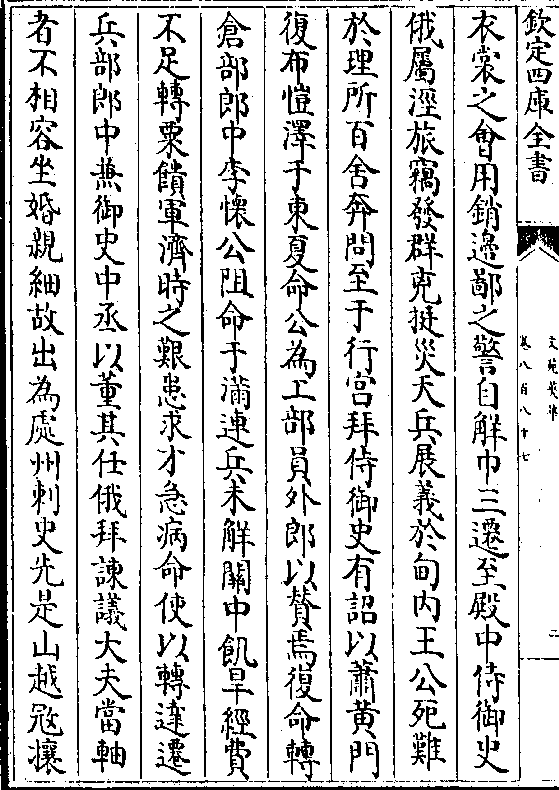 欽定四庫全書
文苑英華
卷八百八十七
二
衣裳之會用銷邊鄙之警自解巾三遷至殿中侍御史
俄屬涇旅竊發群克挺災天兵展義於甸内王公死難
於理所百舍奔問至于行宫拜侍御史有詔以蕭黄門
復布愷澤于東夏命公為工部員外郎以賛焉復命轉
倉部郎中李懷公阻命于蒲連兵未解闗中飢旱經費
不足轉粟饋軍濟時之艱患求才急病命使以轉達遷
兵部郎中兼御史中丞以董其任俄拜諫議大夫當軸
者不相容坐婚親細故出為處州刺史先是山越冦攘